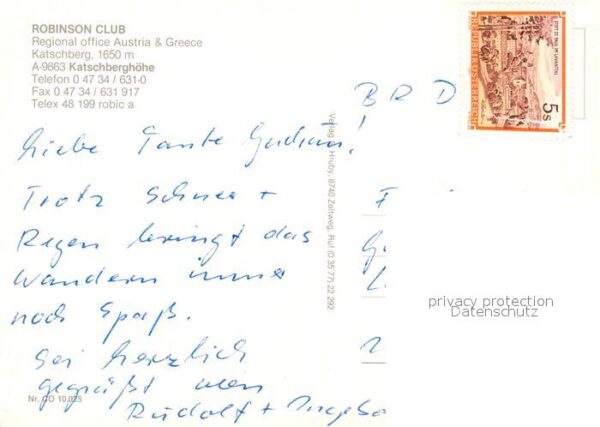 ROBINSON CLUB
Regional office Austria & Greece
Katschberg, 1650 m
A-9863 Katschberghöhe
Telefon 0 47 34 / 631-0
Fax 0 47 34 / 631 917
Telex 48 199 robic a
Liebe Tante Gudrun!
Trotz Schnee +
Regen bringt das
Wandern immer
noch Spaß.
Sei herzlich
gegrüßt von
Rudolf + Ingebo
Nr. CO 10.025
Verlag Hruby, 8740 Zeltweg, Ruf (0 35 77) 22 292
B R D
5 S
REPUBLIK ÖSTERREICH
STIFT ST. PAUL IM LAVANTTAL
privacy protection
Datenschutz